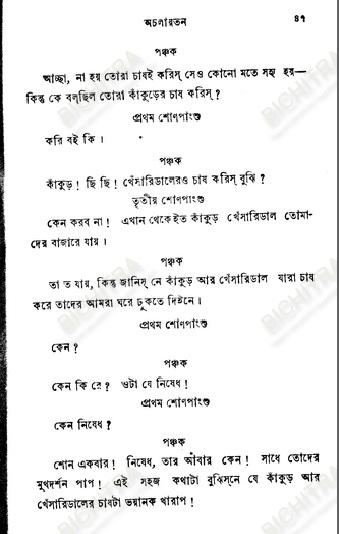 অচলায়তন ৪৭
পঞ্চক
আচ্ছা, না হয় তোরা চাষই করিস্ সেও কোনো মতে সহ্য হয়—
কিন্তু কে বল্‌ছিল তোরা কাঁকুড়ের চাষ করিস্ ?
প্রথম শোণপাংশু
করি বই কি ।
পঞ্চক
কাঁকুড় ! ছি ছি ! খেঁসারিডালেরও চাষ করিস্ বুঝি ?
তৃতীয় শোণপাংশু
কেন করব না ! এখান থেকেইত কাঁকুড় খেঁসারিডাল তোমা-
দের বাজারে যায় ।
পঞ্চক
তা ত যায়, কিন্তু জানিস্ নে কাঁকুড় আর খেঁসারিডাল যারা চাষ
করে তাদের আমরা ঘরে ঢুকতে দিইনে ॥
প্রথম শোণপাংশু
কেন ?
পঞ্চক
কেন কি রে ? ওটা যে নিষেধ !
প্রথম শোণপাংশু
কেন নিষেধ ?
পঞ্চক
শোন একবার ! নিষেধ, তার আবার কেন ! সাধে তোদের
মুখদর্শন পাপ ! এই সহজ কথাটা বুঝিস্‌নে যে কাঁকুড় আর
খেঁসারিডালের চাষটা ভয়ানক খারাপ !
BICHITRA
BICHITRA
BICHITRA
BICHITRA